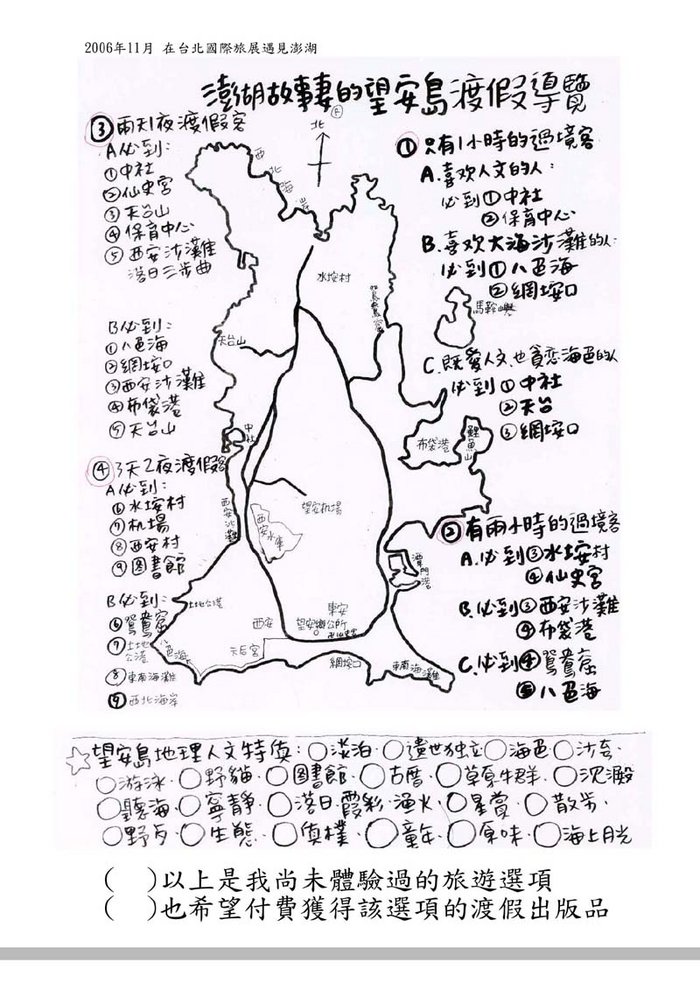 2006年11月 在台北國際旅展遇見澎湖
澎湖故事妻的望安島渡假導覽
③兩天1夜渡假客
A必到:
①中社
②仙史宮
③天台山
④保育中心
⑤西安沙灘
落日三步曲
B必到:
①八邑海
②網垵口
③西安沙灘
④布袋港
⑤天台山
④3天2夜渡假客
A必到:
⑥水垵村
⑦机場
⑧西安村
⑨圖書館
B必到:
⑥鴛鴦窟
⑦土地公港
⑧東南海灘
⑨西北海岸
①只有1小時的過境客
A.喜欢人文的人:
必到①中社
②保育中心
B.喜欢大海沙灘的人:
必到①八邑海
②網垵口
C.既愛人文,也貪恋海邑的人
必到①中社
②天台
③網垵口
②有兩小時的過境客
A.必到③水垵村
④仙史宮
B.必到③西安沙灘
④布袋港
C.必到④鴛鴦窟
⑤八邑海
北
西北海岸
水垵村
鴛鴦窟
馬鞍嶼
天台山
中社
布袋港
鯉魚山
西安北灘
望安机場
西安水庫
潭門港
土地公港
西安
東安
望安鄉公所
仙史宮
八邑海
天后宮
網垵口
東南海灘
☆望安島地理人文特質:○漂泊·○遺世独立○海邑○沙奈·
○游泳·○野貓·○圖書館·○古厝·○草原牛群·○沈澱
○聽海·○寧靜·○落日·霞彩·漁火·○星賞·○散步·
○野與·○生態·○質樸·○童年·○原味·○海上月光
(  )以上是我尚未體驗過的旅遊選項
(  )也希望付費獲得該選項的渡假出版品